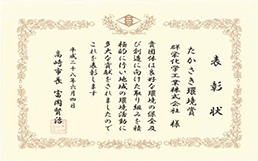 表彰状
たかさき環境賞
群栄化学工業株式会社 様
貴団体は良好な環境の保全及
び創造に向けた取り組みを積
極的に行い地域の環境活動に
多大な貢献をされましたので
これを表彰します
平成二十八年六月四日
高崎市長 富岡賢治